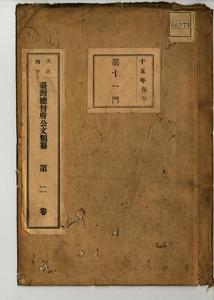 大正
四年
臺灣總督府公文類纂 第二卷
十五年保存
第十一門